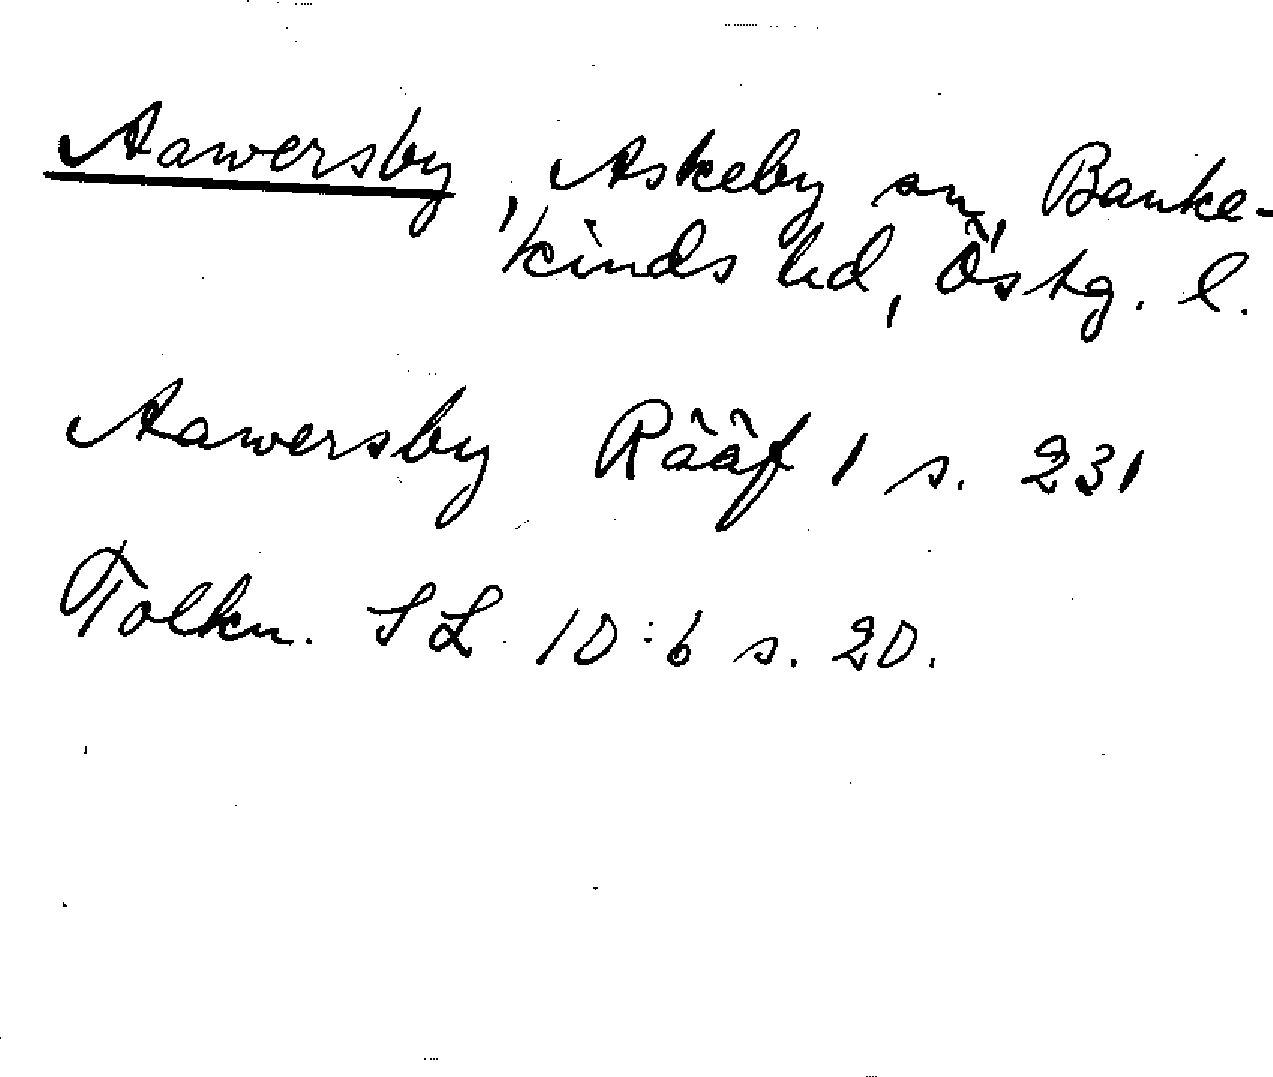 Aawersby, Askeby sn, Banke-
kinds hd, Östg. l.
Aawersby Rääf 1 s. 231
Tolkn. SL 10:6 s. 20.